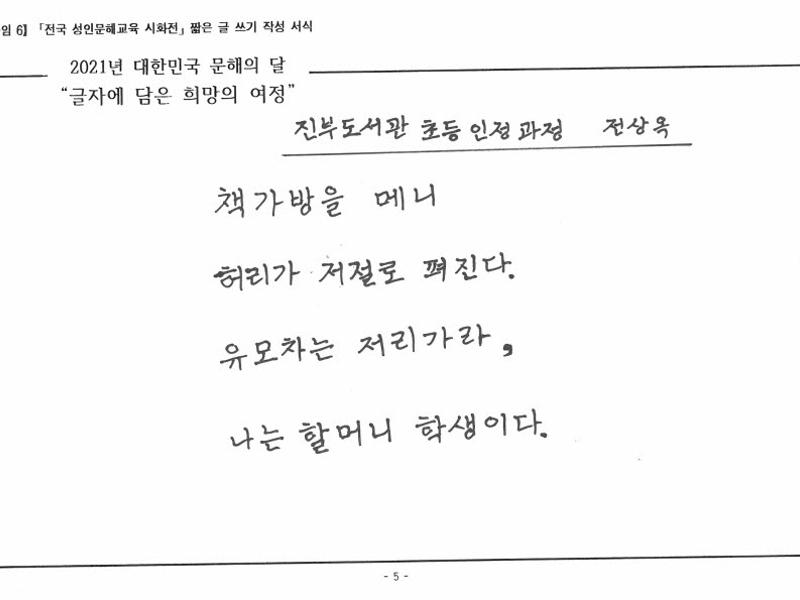 임 6】「전국 성인문해교육 시화전」 짧은 글 쓰기 작성 서식
2021년 대한민국 문해의 달
“글자에 담은 희망의 여정”
진부도서관 초등 인정 과정 전상옥
책가방을 메니
허리가 저절로 펴진다.
유모차는 저리가라,
나는 할머니 학생이다.
- 5 -